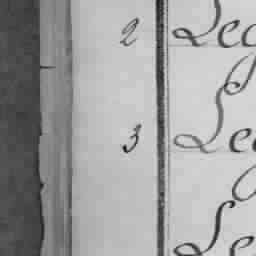 2 Leg
3 Leg
Le